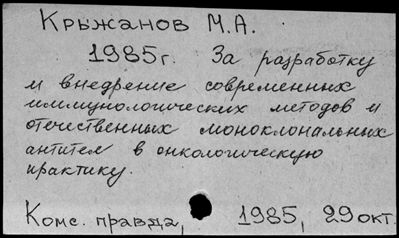 Крыжанов М.А.
1985г. За разработку
и внедрение современных
иммунологических методов и
отечественных моноклональных
антител в онкологическую
практику.
Комс. правда, 1985, 29 окт.